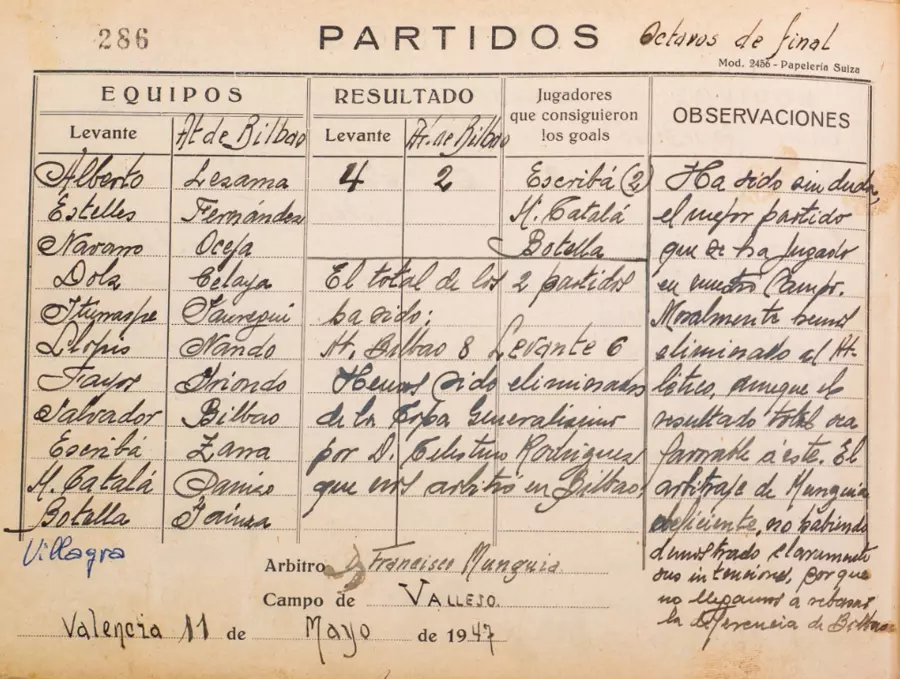 286 PARTIDOS Octavos de final
Mod. 2456 - Papelería Suiza
EQUIPOS RESULTADO Jugadores que consiguieron los goals OBSERVACIONES
Levante At. de Bilbao Levante At. de Bilbao
Alberto Lezama 4 2 Escribá (2) Ha sido sin duda,
Estelles Fernández M. Catalá el mejor partido
Navarro Oceja Botella que se ha jugado
Dolz Celaya El total de los 2 partidos en nuestro Campo.
Iturraspe Jauregui ha sido: Moralmente hemos
Llopis Nando At. Bilbao 8 Levante 6 eliminado al At-
Fayos Iriondo Hemos sido eliminados lético, aunque el
Salvador Bilbao de la Copa Generalísimo resultado total sea
Escribá Zarra por D. Celestino Rodríguez favorable á éste. El
M. Catalá Panizo que nos arbitró en Bilbao. arbitraje de Munguia
Botella Gainza deficiente, no habiendo
Villagra demostrado claramente
Arbitro D. Francisco Munguia. sus intenciones, porque
Campo de VALLEJO. no llegamos a rebasar
Valencia 11 de Mayo de 1947 la diferencia de Bilbao